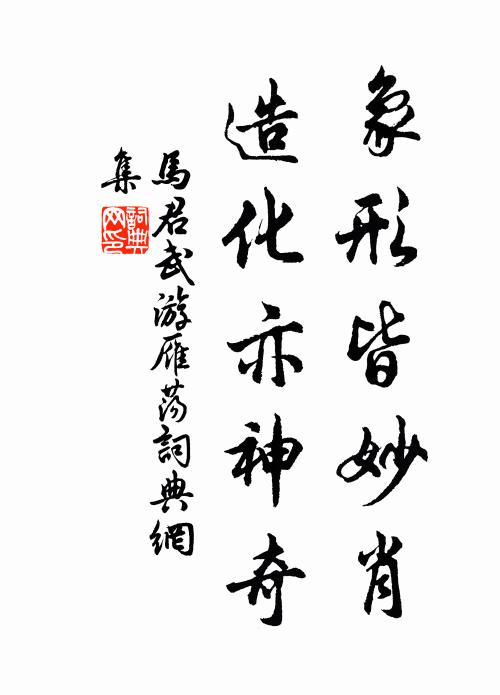 象形皆妙肖
造化亦神奇
馬君武游雁荡詞典網
集
詞典
网印